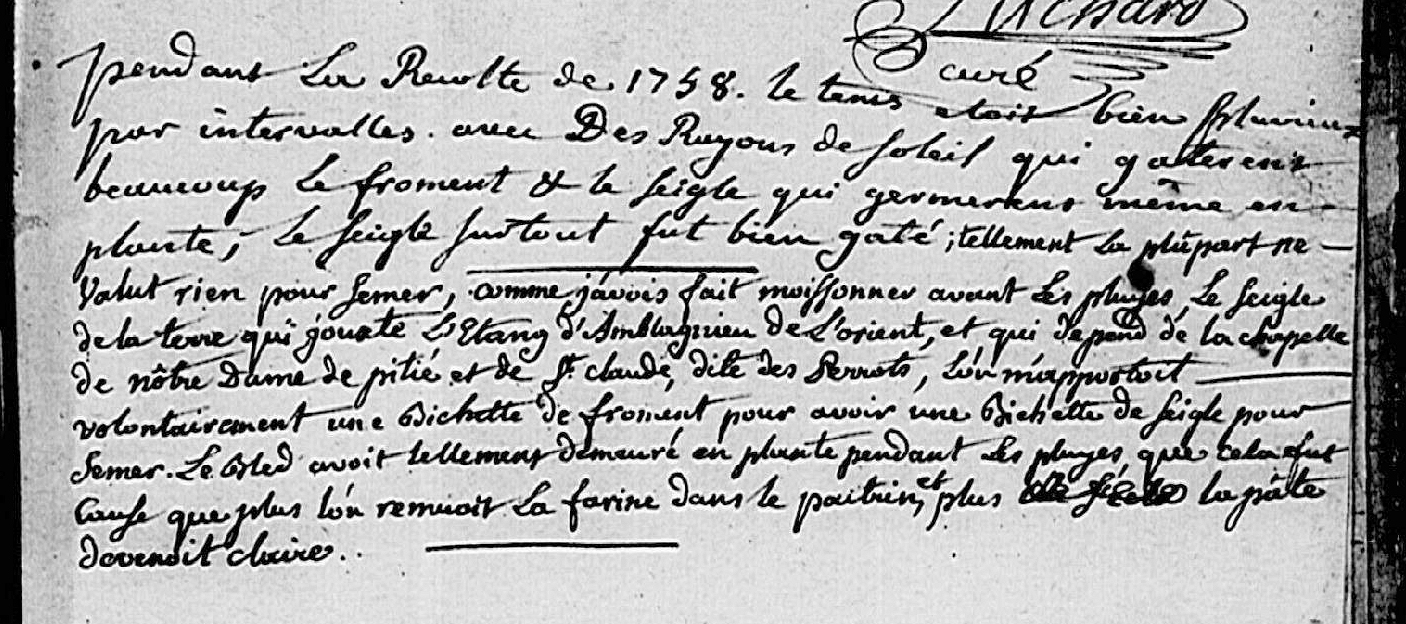 Richard
curé
pendant La Recolte de 1758. le tems etoit bien pluvieux
par intervalles. avec Des Rayons de soleil qui gaterent
beaucoup Le froment & le seigle qui germerent même en
plante; Le seigle surtout fut bien gaté; tellement La plûpart ne
valut rien pour semer, comme j'avois fait moissonner avant Les pluyes Le seigle
de la terre qui jouxte L'Etang d'Amblagnieu de L'orient, et qui depend de la chapelle
de nôtre Dame de pitié et de St. claude, dite des Perrots, L'on m'apportoit
volontairement une Bichette de froment pour avoir une Bichette de seigle pour
semer. Le Bled avoit tellement demeuré en plante pendant Les pluyes que cela fut
Cause que plus l'on remuoit La farine dans le paitrin, et plus la pâte
devenoit claire..